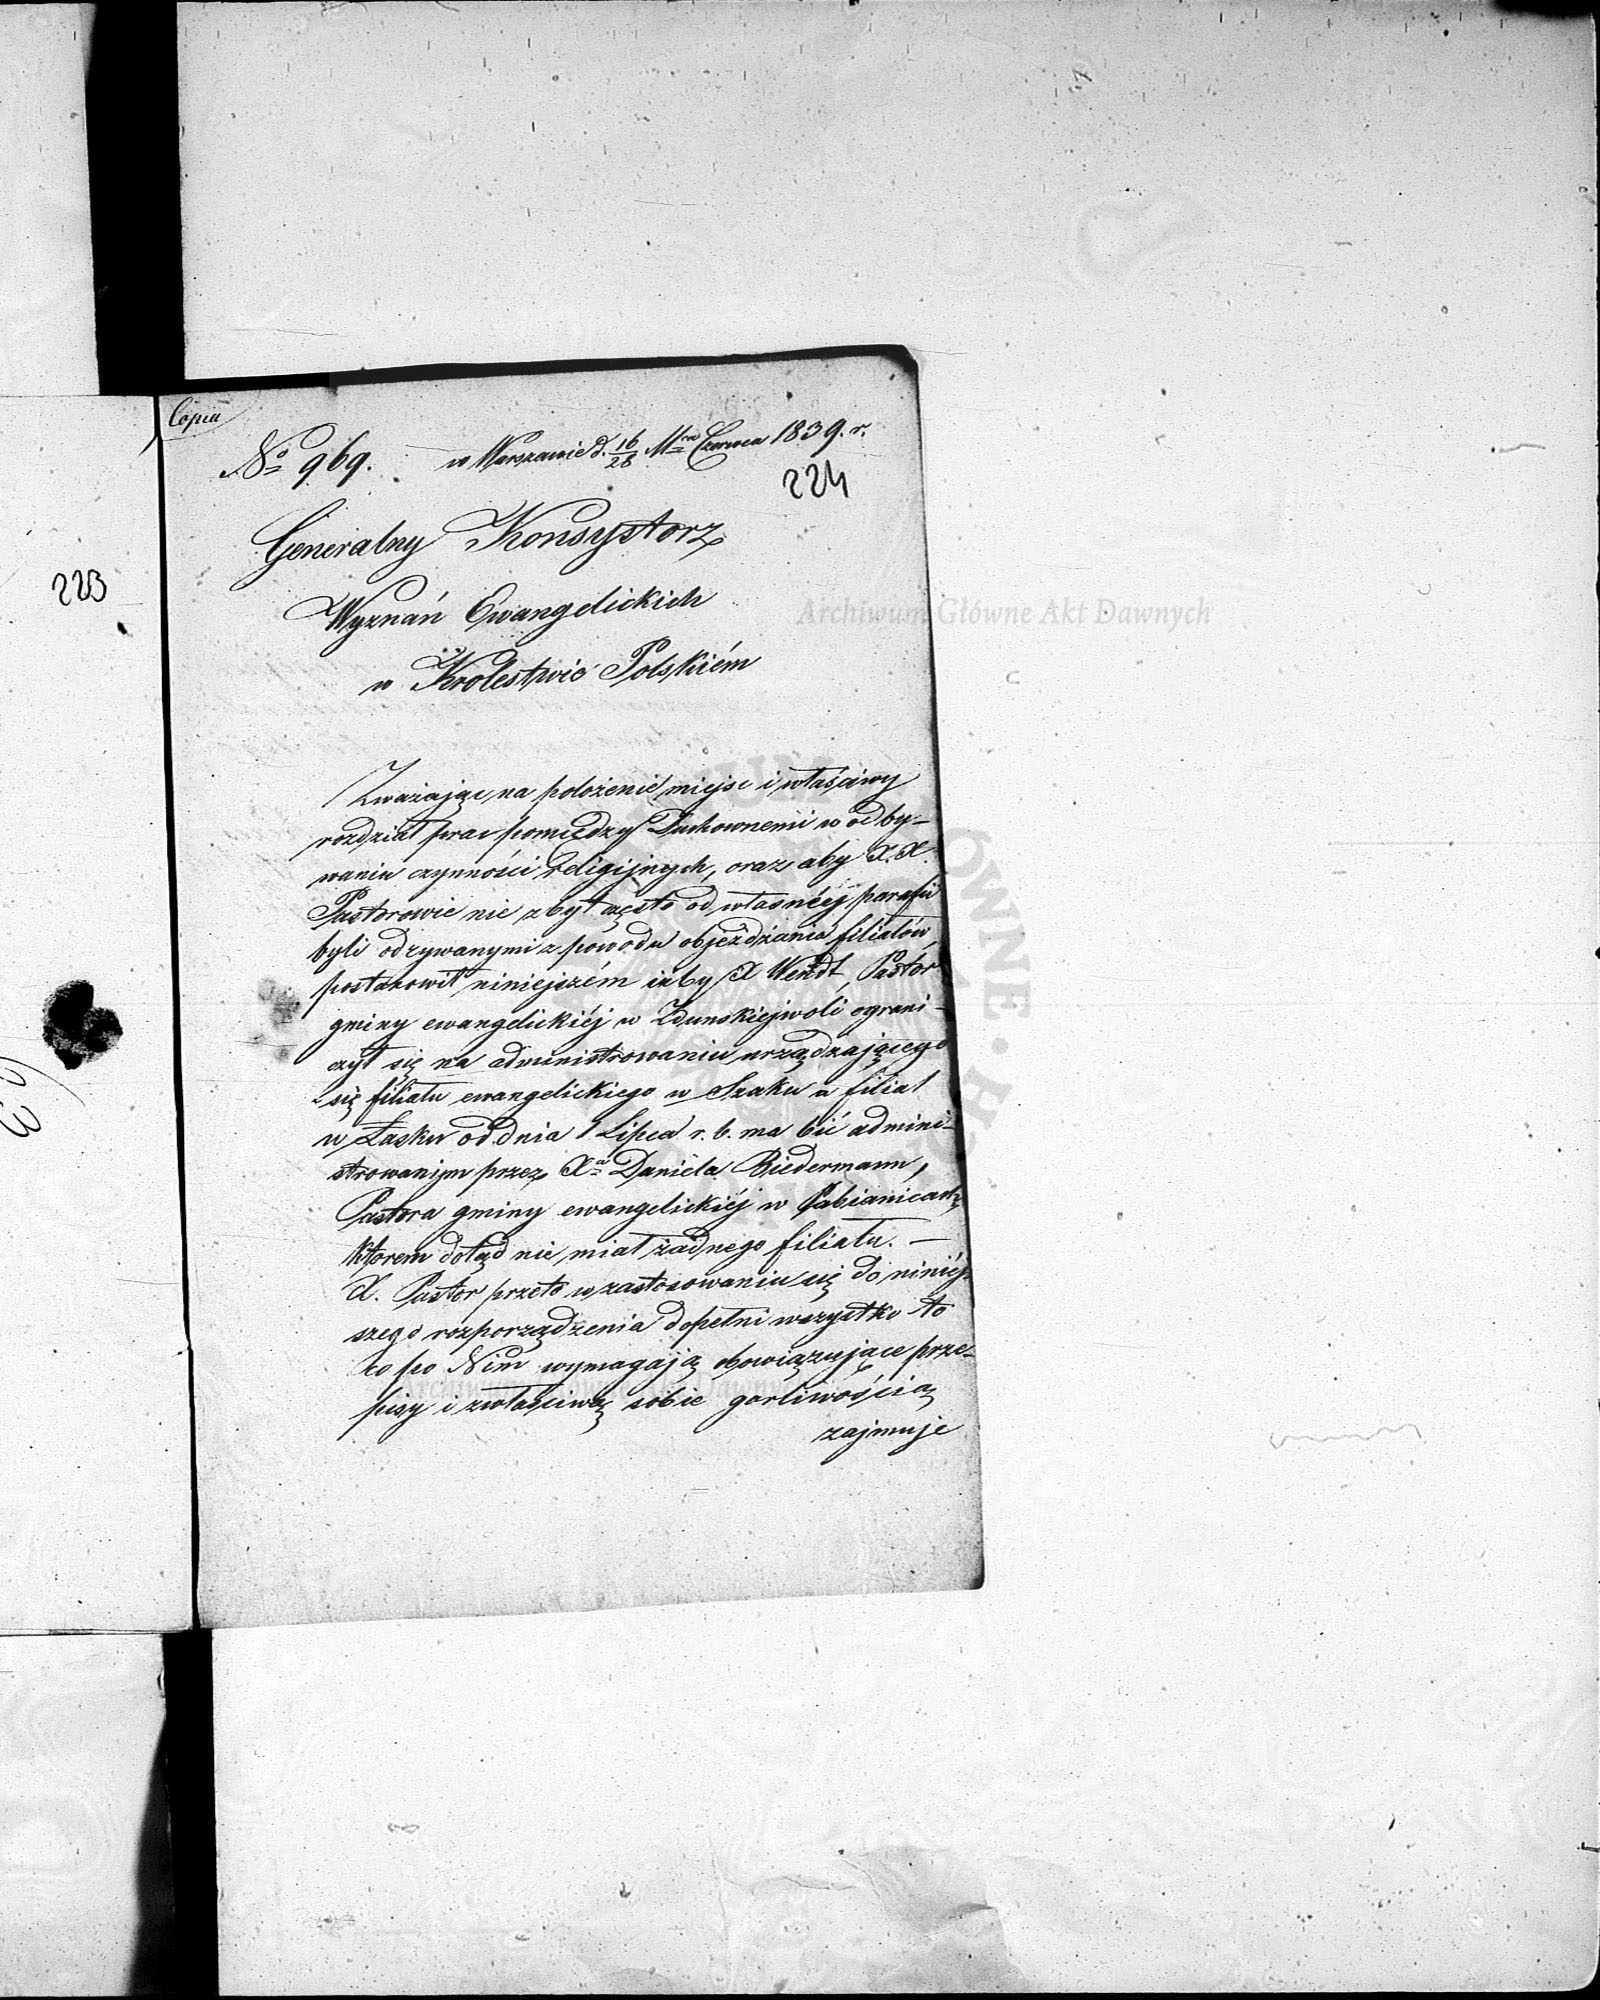 Copia
No 969. w Warszawie d. 16/28 Mca Czerwca 1839. r.
224
Generalny Konsystorz
Wyznań Ewangelickich
w Krolestwie Polskiém
223
Archiwum Główne Akt Dawnych
Zważając na położenie miejsc i właściwy
rozdział prac pomiędzy Duchownemi w odby-
waniu czynności religijnych, oraz aby X.X.
Pastorowie nie zbyt często od własnéej parafii
byli odrywanymi z powodu objeżdżania filiałów,
postanowił niniejszém iżby X Wendt, Pastor
gminy ewangelickiéj w Zdunskiejwoli ograni-
czył się na administrowaniu urządzającego
się filiału ewangelickiego w Szaku a filiał
w Łasku od dnia 1 Lipca r. b. ma bić admini-
strowanym przez Xa Daniela Biedermann,
Pastora gminy ewangelickiéj w Pabianicach,
ktorem dotąd nie miał żadnego filiału. —
X. Pastor przeto w zastosowaniu się do niniéj-
szego rozporządzenia dopełni wszystko to
co po Nim wymagają obowiązujące prze-
pisy i zwłaściwą sobie gorliwością
zajmuje